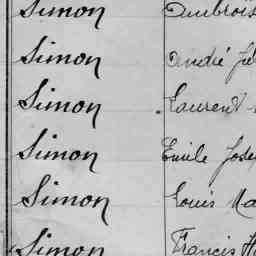 Simon Ambrois
Simon André
Simon Laurent
Simon Emile Jose
Simon Louis Ma
Simon Francis H